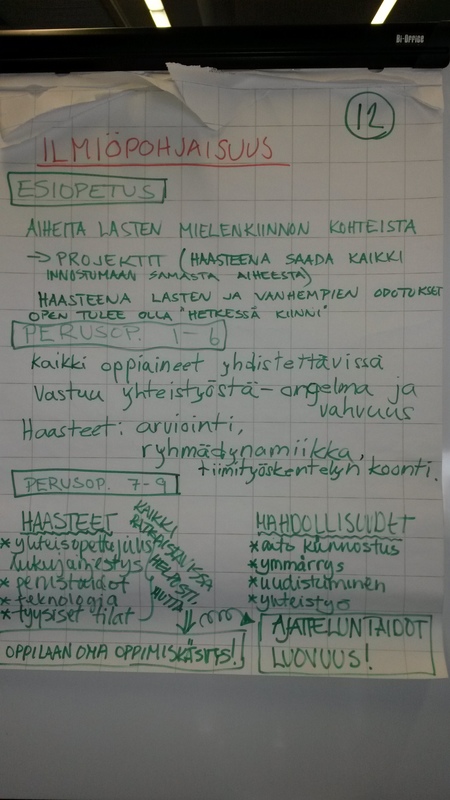 Bi-Office
12
ILMIÖPOHJAISUUS
ESIOPETUS
AIHEITA LASTEN MIELENKIINNON KOHTEISTA
→ PROJEKTIT (HAASTEENA SAADA KAIKKI
INNOSTUMAAN SAMASTA AIHEESTA)
HAASTEENA LASTEN JA VANHEMPIEN ODOTUKSET
OPEN TULEE OLLA "HETKESSÄ KIINNI"
PERUSOP. 1-6
Kaikki oppiaineet yhdistettävissä
Vastuu yhteistyöstä - ongelma ja
vahvuus
Haasteet: arviointi,
ryhmädynamiikka,
tiimityöskentelyn koonti.
PERUSOP. 7-9
HAASTEET
* yhteisopettajuus
lukujärjestys
* perustaidot
* teknologia
* fyysiset tilat
KAIKKI
RATKAISTAVISSA
HELPOSTI,
MUTTA
OPPILAAN OMA OPPIMISKÄSITYS!
MAHDOLLISUUDET
* aito kiinnostus
* ymmärrys
* uudistuminen
* yhteistyö
AJATTELUNTAIDOT
LUOVUUS!